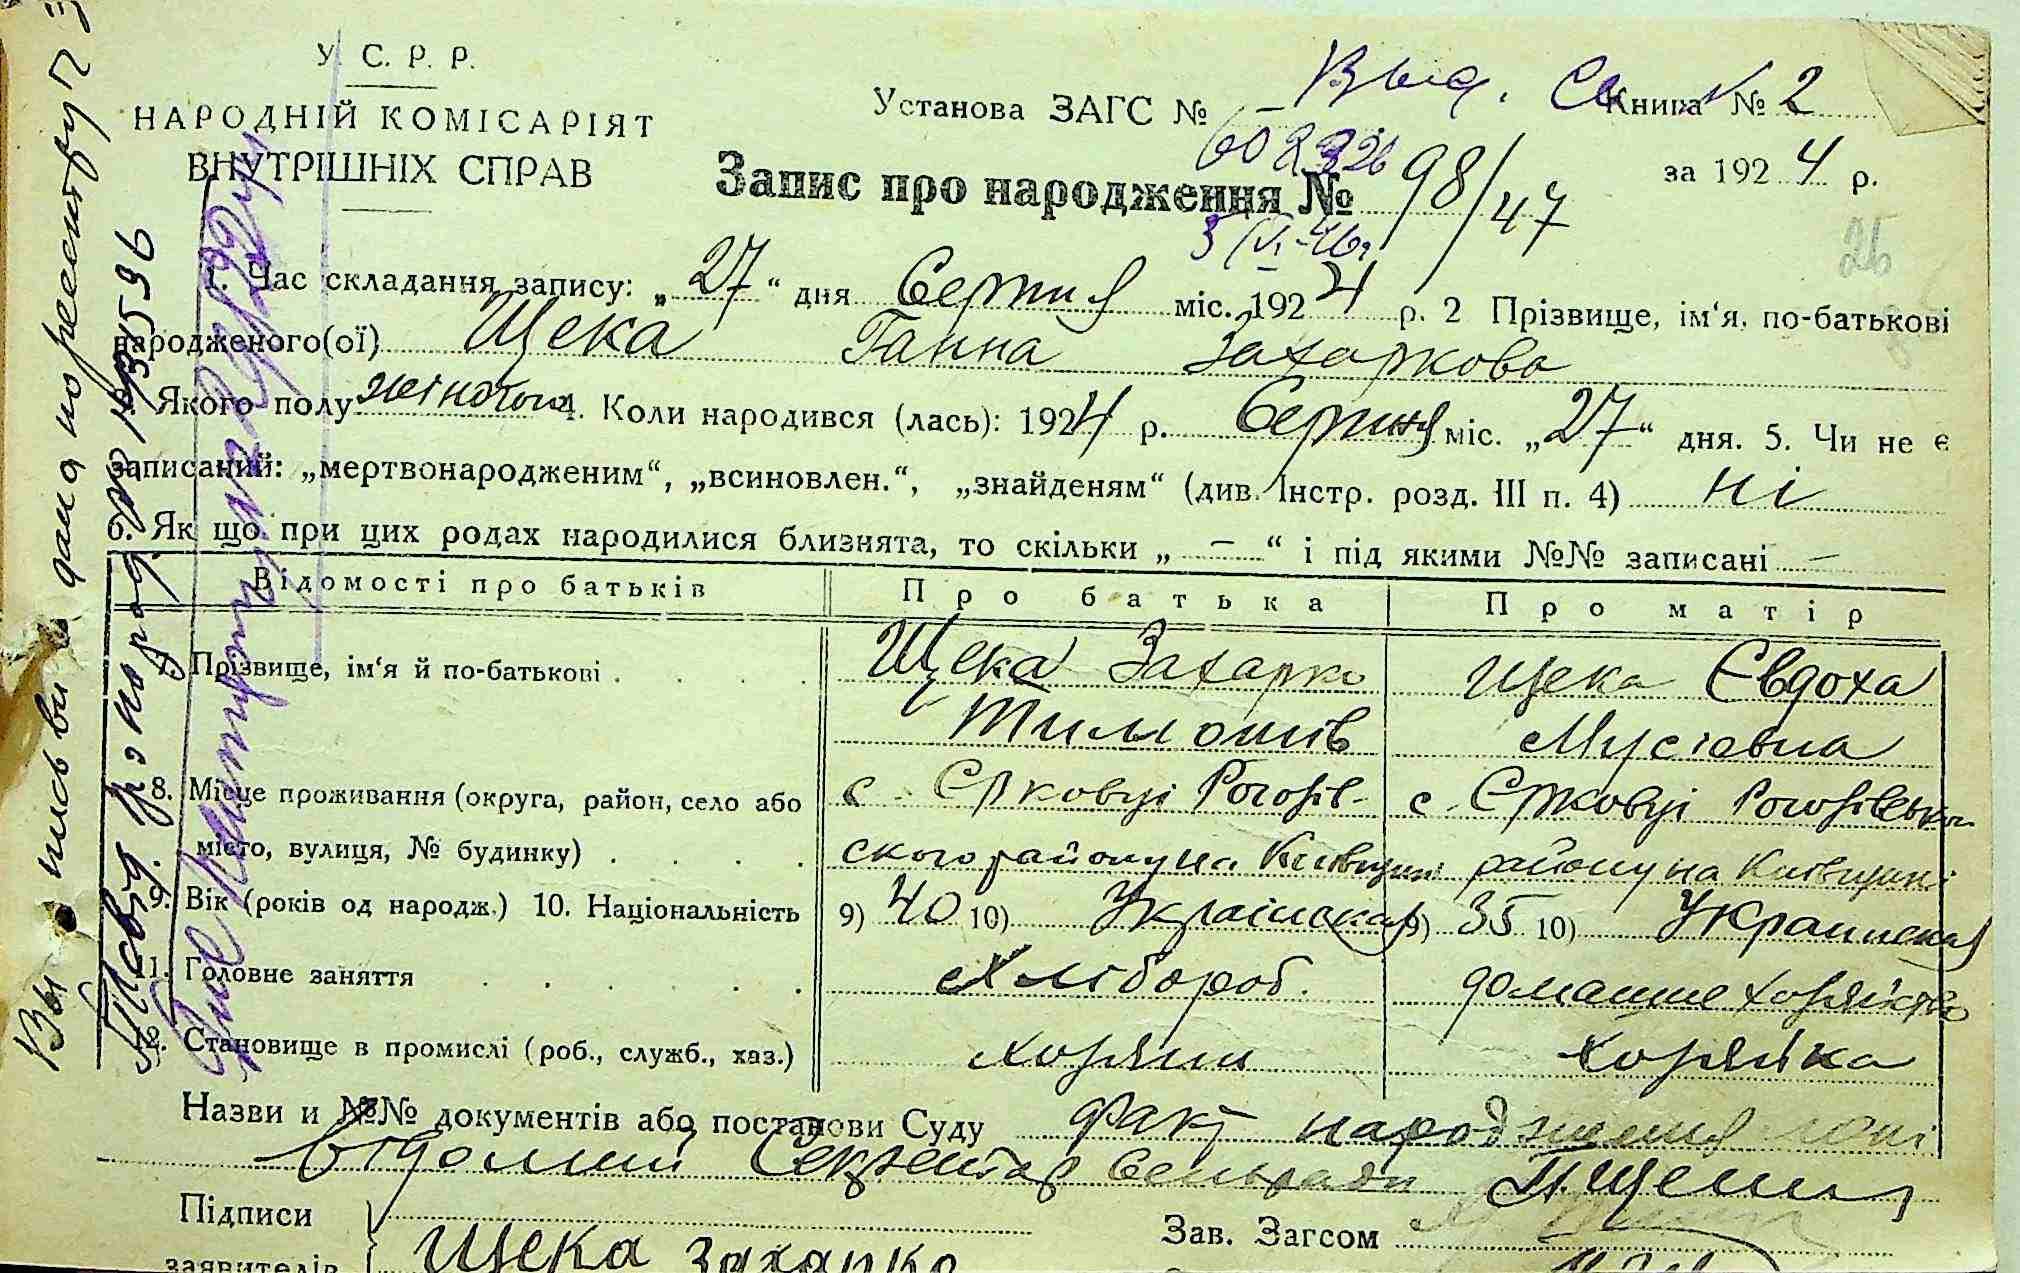 У. С. Р. Р.
НАРОДНІЙ КОМІСАРІЯТ
ВНУТРІШНІХ СПРАВ
Установа ЗАГС № Выд.
Книга № 2
за 1924 р.
Запис про народження № 98/47
26
1. Час складання запису: „27“ дня Серпня міс. 1924 р. 2 Прізвище, ім‘я, по-батькові
народженого(ої) Щека Ганна Захаркова
Якого полу жіночого 4. Коли народився (лась): 1924 р. Серпня міс. „27“ дня. 5. Чи не є
записаний: „мертвонародженим“, „всиновлен.“, „знайденям“ (див. Інстр. розд. III п. 4) ні
6. Як що при цих родах народилися близнята, то скільки „ – “ і під якими №№ записані –
Відомості про батьків Про батька Про матір
7. Прізвище, ім‘я й по-батькові Щека Захарко Щека Євдоха
Тимошів Мусіовна
8. Місце проживання (округа, район, село або с. Єрковці Рогозів- с. Єрковці Рогозівського
місто, вулиця, № будинку) ского району на Київщині району на Київщині
9. Вік (років од народж.) 10. Національність 9) 40 10) Українська 9) 35 10) Украинская
11. Головне заняття Хлібороб. домашне хозяйство
12. Становище в промислі (роб., служб., хаз.) хозяин хозяйка
Назви и №№ документів або постанови Суду Факт народження мені
відомий Секретар Сельради
Підписи
заявителів Щека Захарко
Зав. Загсом